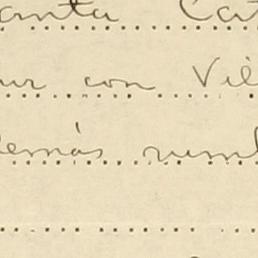 anta Cat
ur con Vil
emás rumb